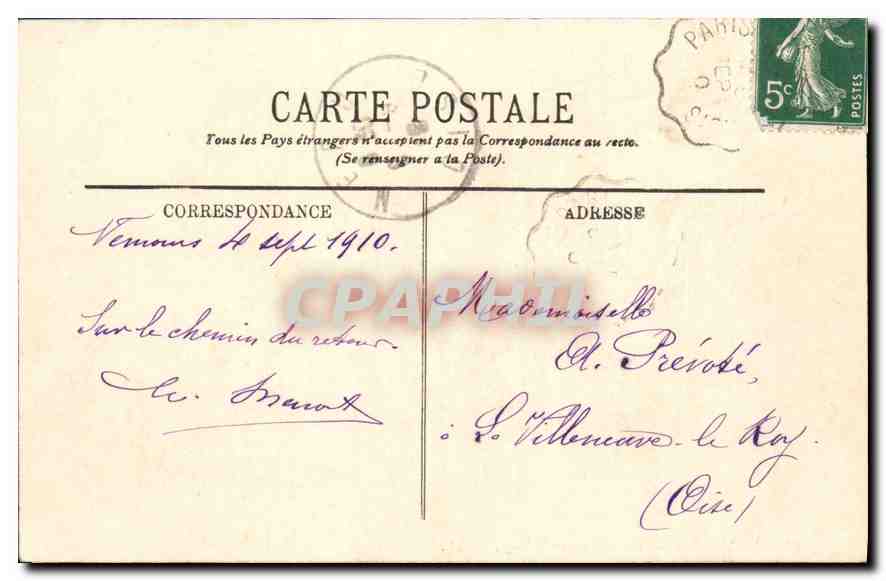 CARTE POSTALE
Tous les Pays étrangers n'acceptent pas la Correspondance au recto.
(Se renseigner a la Poste).
CORRESPONDANCE
ADRESSE
Nemours 4 sept 1910.
Sur le chemin du retour.
Mademoiselle
A. Prévoté,
à La Villeneuve-le Roy.
(Oise)
PARIS
5c
POSTES
CPAPHIL